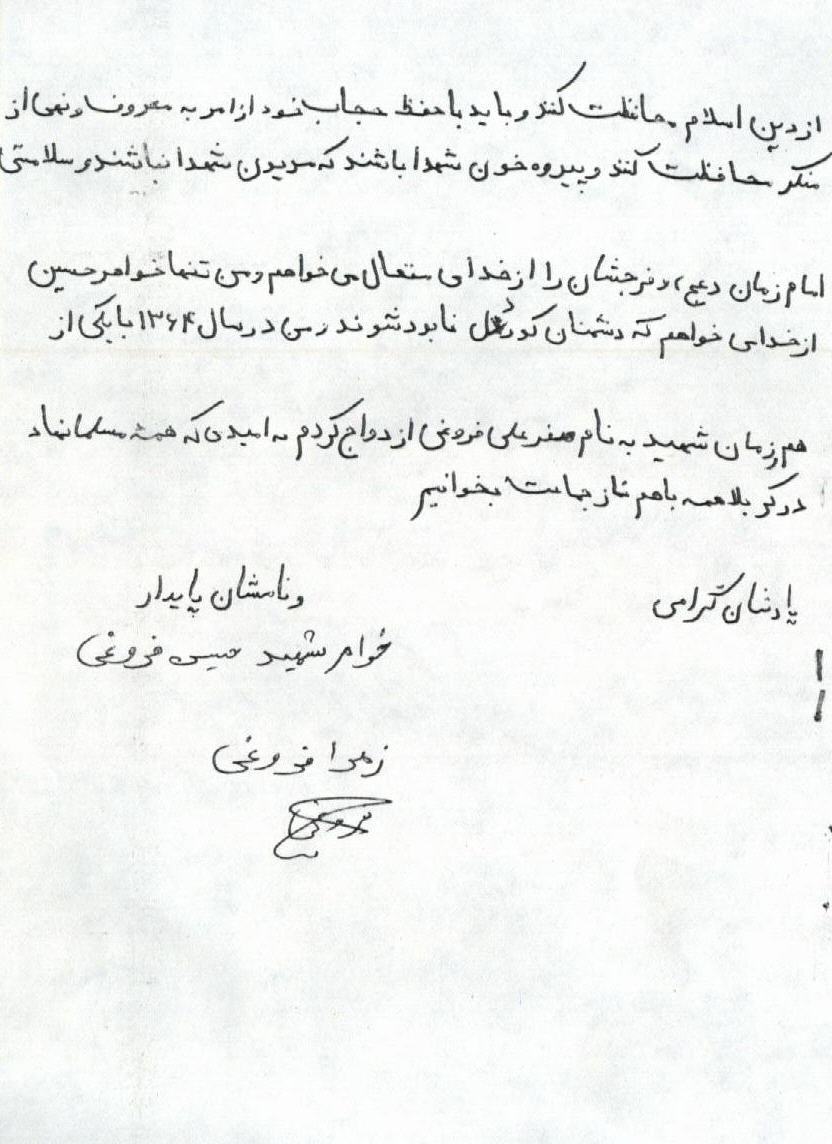 از دین اسلام محافظت کنند و باید با حفظ حجاب خود از امر به معروف و نهی از
منکر محافظت کنند و پیروه خون شهدا باشند که مدیون شهدا نباشند و سلامتی
امام زمان (عج) و فرجشان را از خدای متعال می خواهم و من تنها خواهر حسین
از خدا می خواهم که دشمنان کور دل نابود شوند و من در سال ۱۳۶۴ با یکی از
هم رزمان شهید به نام صفر علی فروغی ازدواج کردم به امیدی که همه مسلمانها
در کربلا همه با هم نماز جماعت بخوانیم
یادشان گرامی و نامشان پایدار
خواهر شهید حسین فروغی
زهرا فروغی